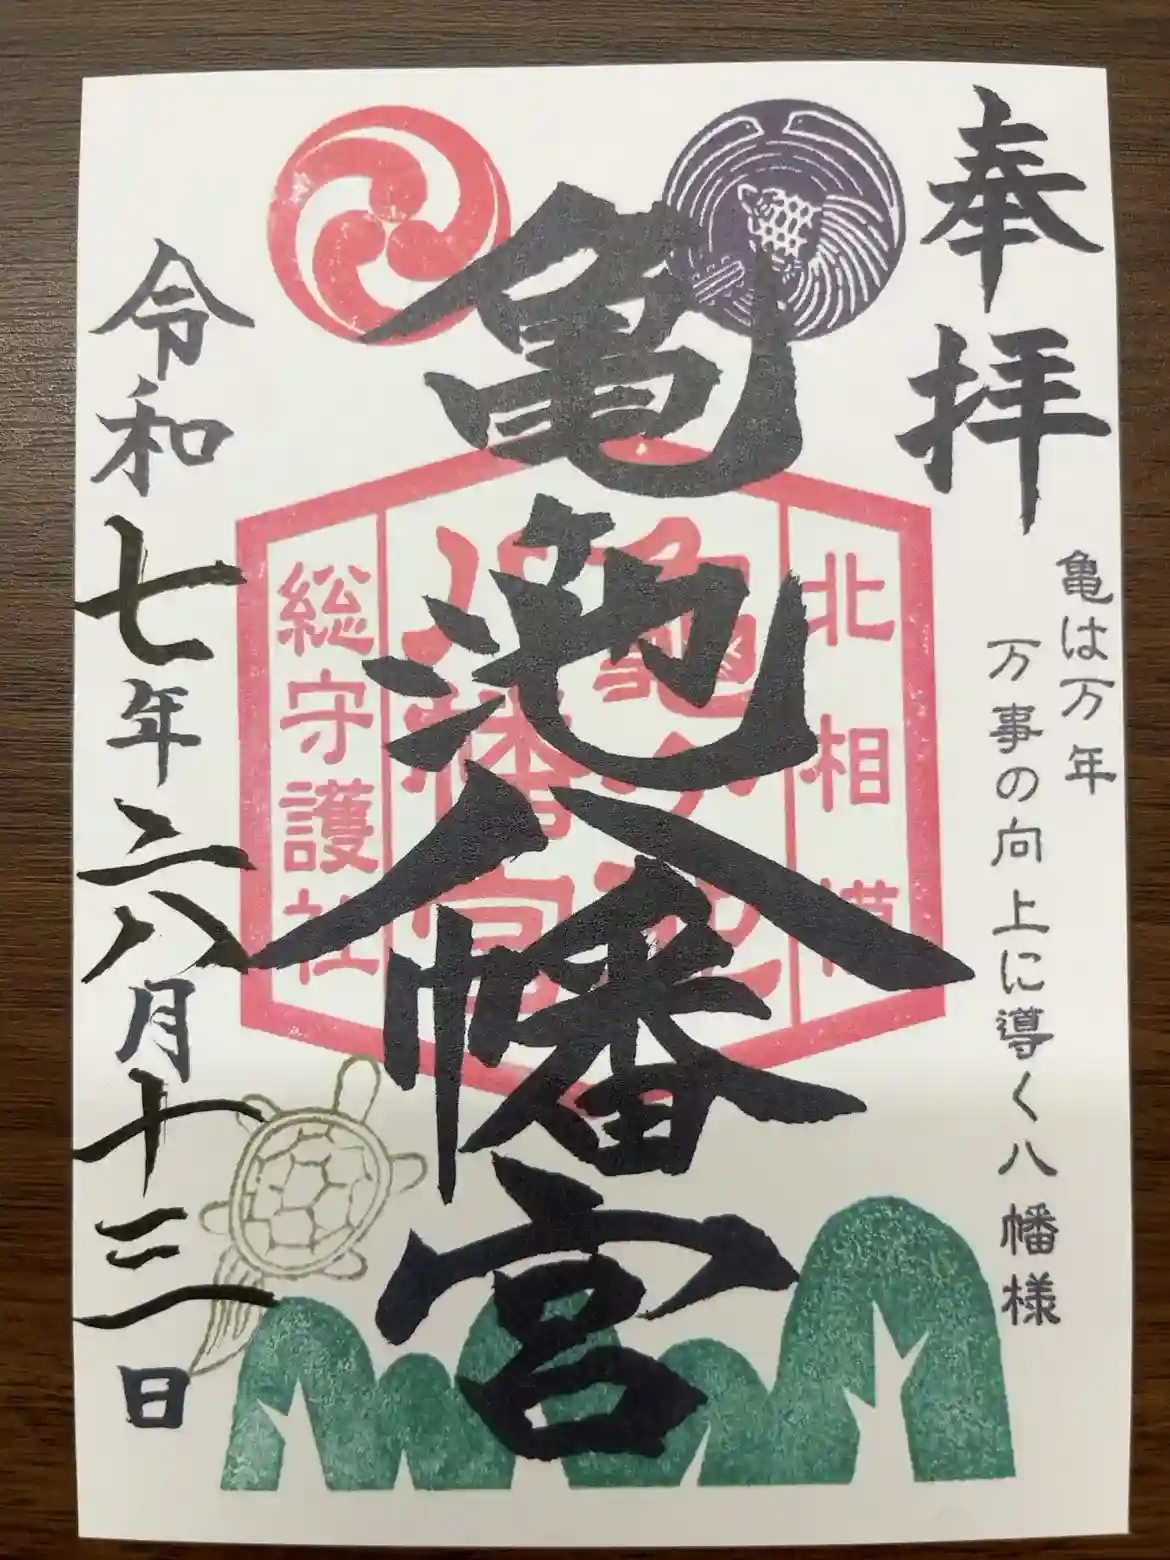 奉拝
亀は万年
万事の向上に導く八幡様
亀池八幡宮
北相模
亀ヶ池
八幡宮
総守護社
令和七年六月十三日